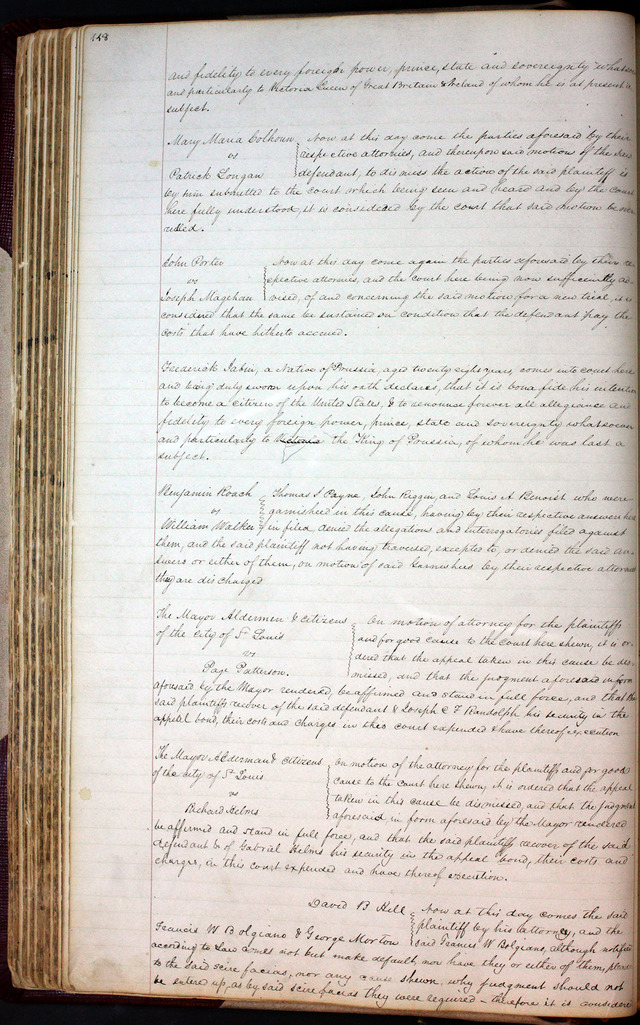 148
and fidelity to every foreign power, prince, state and sovereignty whatso
and particularly to Victoria Queen of Great Britain & Ireland of whom he is at present a
subject.
Mary Maria Colhoun Now at this day come the parties aforesaid by their
vs respective attornies, and thereupon said motion of the said
Patrick Longan defendant, to dismiss the action of the said plaintiff is
by him submitted to the court which being seen and heard and by the court
here fully understood, it is considered by the court that said motion be over
ruled.
John Porter Now at this day come again the parties aforesaid by their re
vs spective attornies, and the court here being now sufficiently ad
Joseph Magehan vised, of and concerning the said motion for a new trial, it is
considered that the same be sustained on condition that the defendant pay the
costs that have hitherto accrued.
Frederick Jabin, a Native of Prussia, aged twenty eight years, comes into court here
and being duly sworn upon his oath declares, that it is bona fide his intention
to become a citizen of the United States, & to renounce forever all allegiance and
fidelity to every foreign power, prince, state and sovereignty whatsoever
and particularly to Victoria the King of Prussia, of whom he was last a
subject.
Benjamin Roach Thomas S Payne, John Riggin, and Louis A Benoist who were
vs garnisheed in this cause, having by their respective answers here
William Walker in filed, denied the allegations and interrogatories filed against
them, and the said plaintiff not having traversed, excepted to, or denied the said an
swers or either of them, on motion of said Garnishees by their respective attornies
they are discharged
The Mayor Aldermen & citizens On motion of attorney for the plaintiffs
of the city of St Louis and for good cause to the court here shewn, it is or
vs dered that the appeal taken in this cause be dis
Page Patterson. missed, and that the judgment aforesaid in form
aforesaid by the Mayor rendered, be affirmed and stand in full force, and that the
said plaintiffs recover of the said defendant & Joseph C F Randolph his security in the
appeal bond, their costs and charges in this court expended & have thereof execution
The Mayor Alderman & citizens On motion of the attorney for the plaintiffs and for good
of the city of St Louis cause to the court here shewn, it is ordered that the appeal
vs taken in this cause be dismissed, and that the Judgment
Richard Helms aforesaid, in form aforesaid by the Mayor rendered
be affirmed and stand in full force, and that the said plaintiffs recover of the said
defendant & of Gabriel Helms his security in the appeal bond, their costs and
charges, in this court expended and have thereof execution.
David B Hill Now at this day comes the said
plaintiff by his attorney, and the
Francis W Bolgiano & George Morton said Francis W Bolgiano, although notified
according to Law comes not but make default, nor have they or either of them, plead
to the said scire facias, nor any cause shewn, why judgment should not
be entered up, as by said scire facias they were required - therefore it is considered